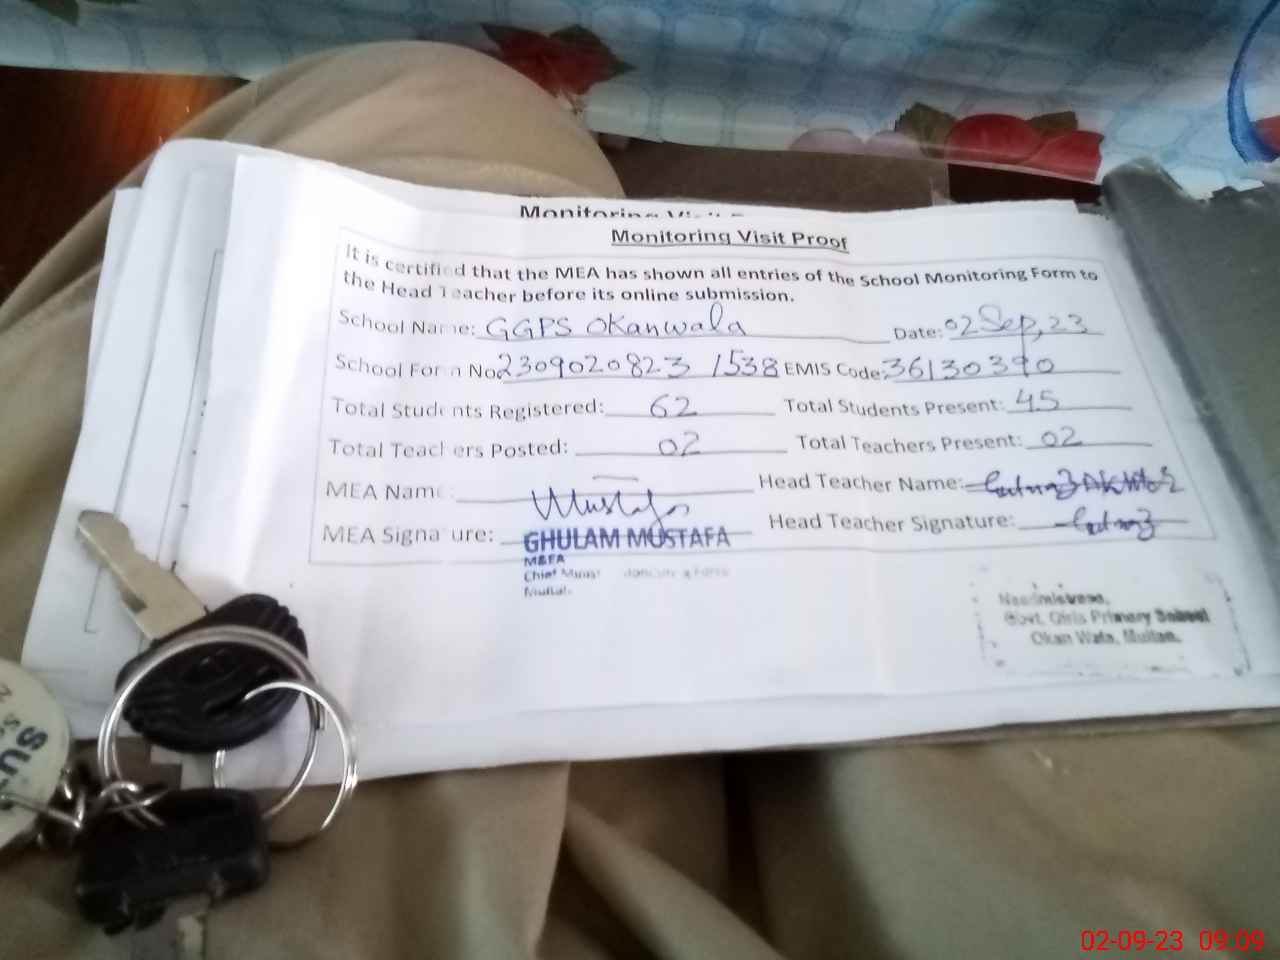 Monitoring Visit Proof
It is certified that the MEA has shown all entries of the School Monitoring Form to
the Head Teacher before its online submission.
School Name: GGPS Okanwala Date: 02 Sep, 23
School Form No. 2309020823 1538 EMIS Code: 36130390
Total Students Registered: 62 Total Students Present: 45
Total Teachers Posted: 02 Total Teachers Present: 02
MEA Name: Head Teacher Name:
Mustafa
MEA Signature: Head Teacher Signature:
GHULAM MUSTAFA
M&EA
Chief
Multan
Headmistress,
Govt. Girls Primary School
Okan Wala, Multan.
SU
02-09-23 09:09